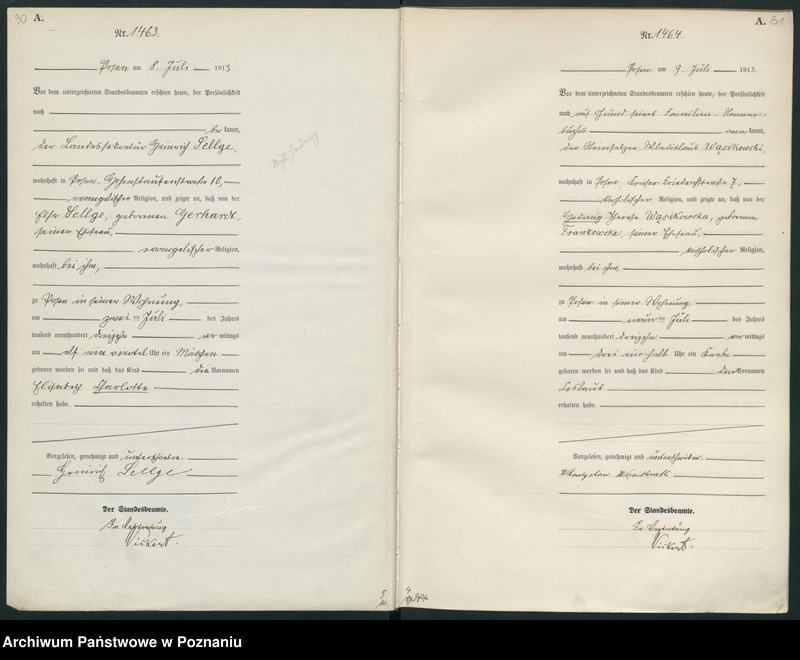 30 A.
Nr. 1463.
Posen am 8. Juli 1913
Vor dem unterzeichneten Standesbeamten erschien heute, der Persönlichkeit
nach
be kannt,
der Landessekretär Heinrich Sellge,
wohnhaft in Posen, Hohenstaufenstraße 10,
evangelischer Religion, und zeigte an, daß von der
Else Sellge, geborenen Gerhardt,
seiner Ehefrau,
evangelischer Religion,
wohnhaft bei ihm,
zu Posen in seiner Wohnung
am zwei ten Juli des Jahres
tausend neunhundert dreizehn vor mittags
um elf ein viertel Uhr ein Mädchen
geboren worden sei und daß das Kind die Vornamen
Elisabeth Charlotte
erhalten habe.
Vorgelesen, genehmigt und unterschrieben
Heinrich Sellge
Der Standesbeamte.
In Vertretung
A. 31
Nr. 1464.
Posen am 9. Juli 1913.
Vor dem unterzeichneten Standesbeamten erschien heute, der Persönlichkeit
nach auf Grund seines Familien-Stamm-
buches aner kannt,
der Steinsetzer Wladislaus Wąsikowski,
wohnhaft in Posen, Kaiser Friedrichstraße 7,
katholischer Religion, und zeigte an, daß von der
Hedwig Therese Wąsikowska, geborenen
Frankowska, seiner Ehefrau,
katholischer Religion,
wohnhaft bei ihm,
zu Posen in seiner Wohnung
am neun ten Juli des Jahres
tausend neunhundert dreizehn vor mittags
um drei einhalb Uhr ein Knabe
geboren worden sei und daß das Kind den Vornamen
Leslaus
erhalten habe.
Vorgelesen, genehmigt und unterschrieben.
Der Standesbeamte.
In Vertretung
Archiwum Państwowe w Poznaniu